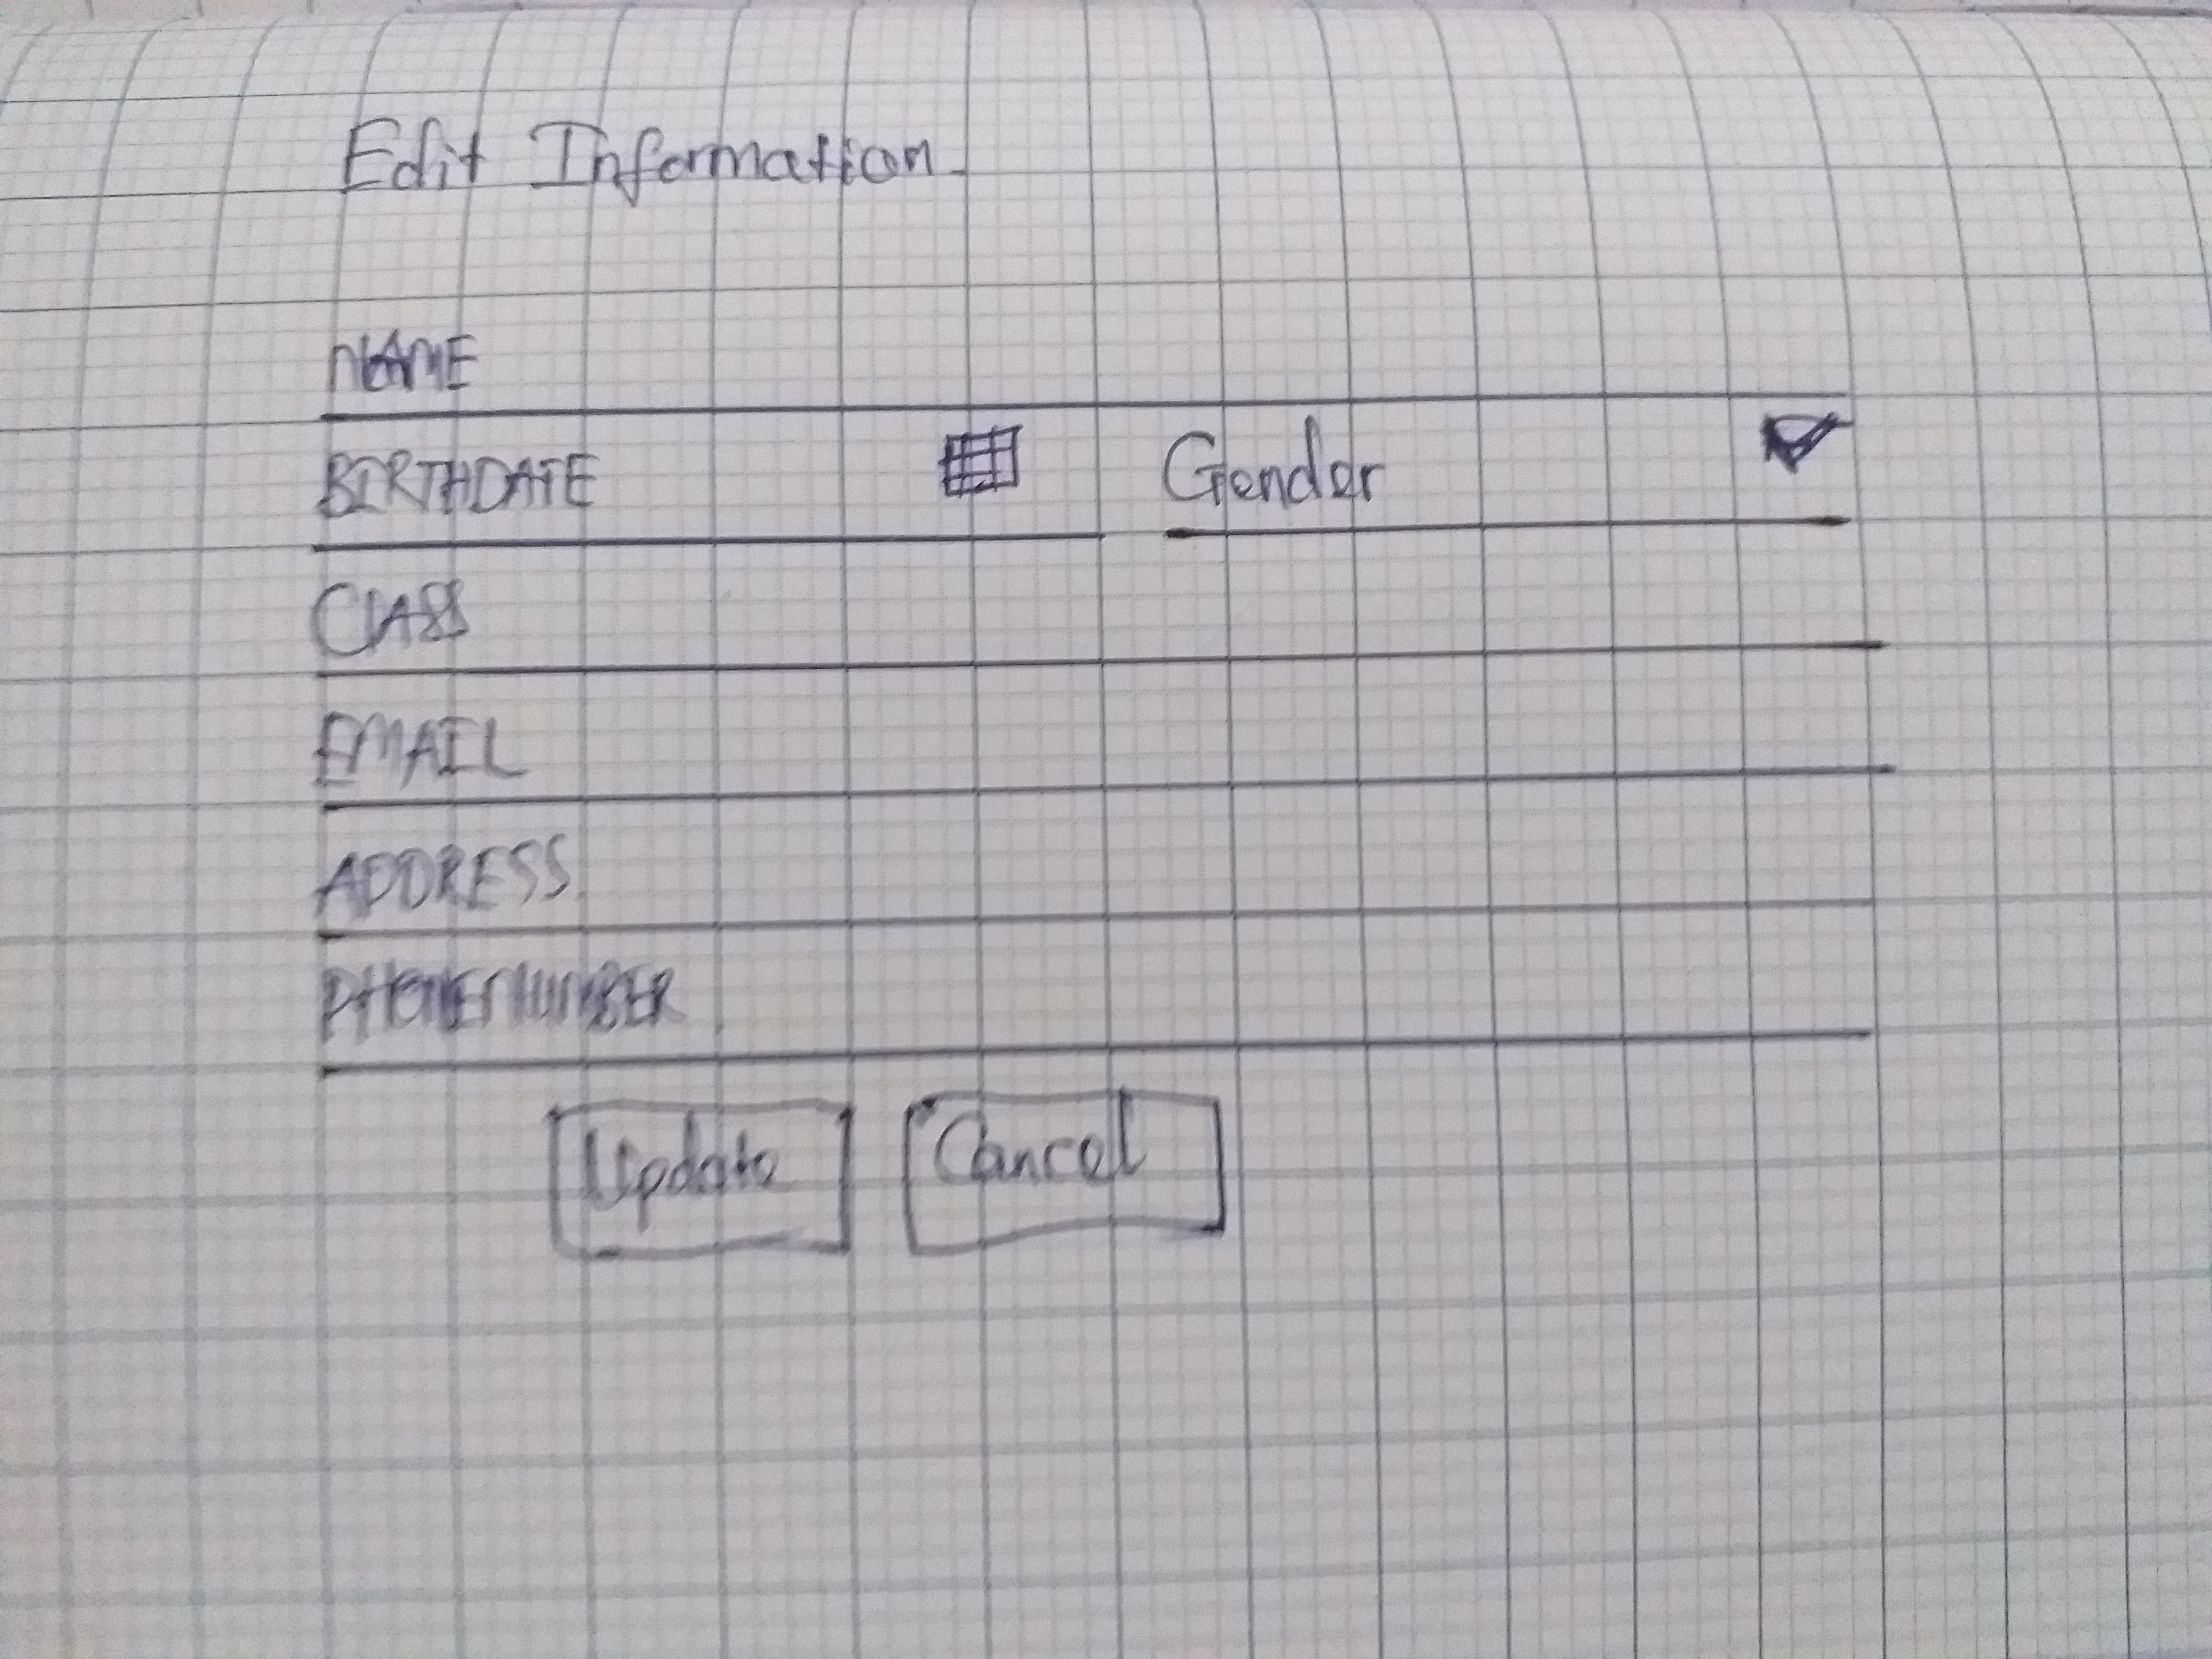 Edit Information
NAME
BIRTHDATE Gender
CLASS
EMAIL
ADDRESS
PHONENUMBER
Update Cancel